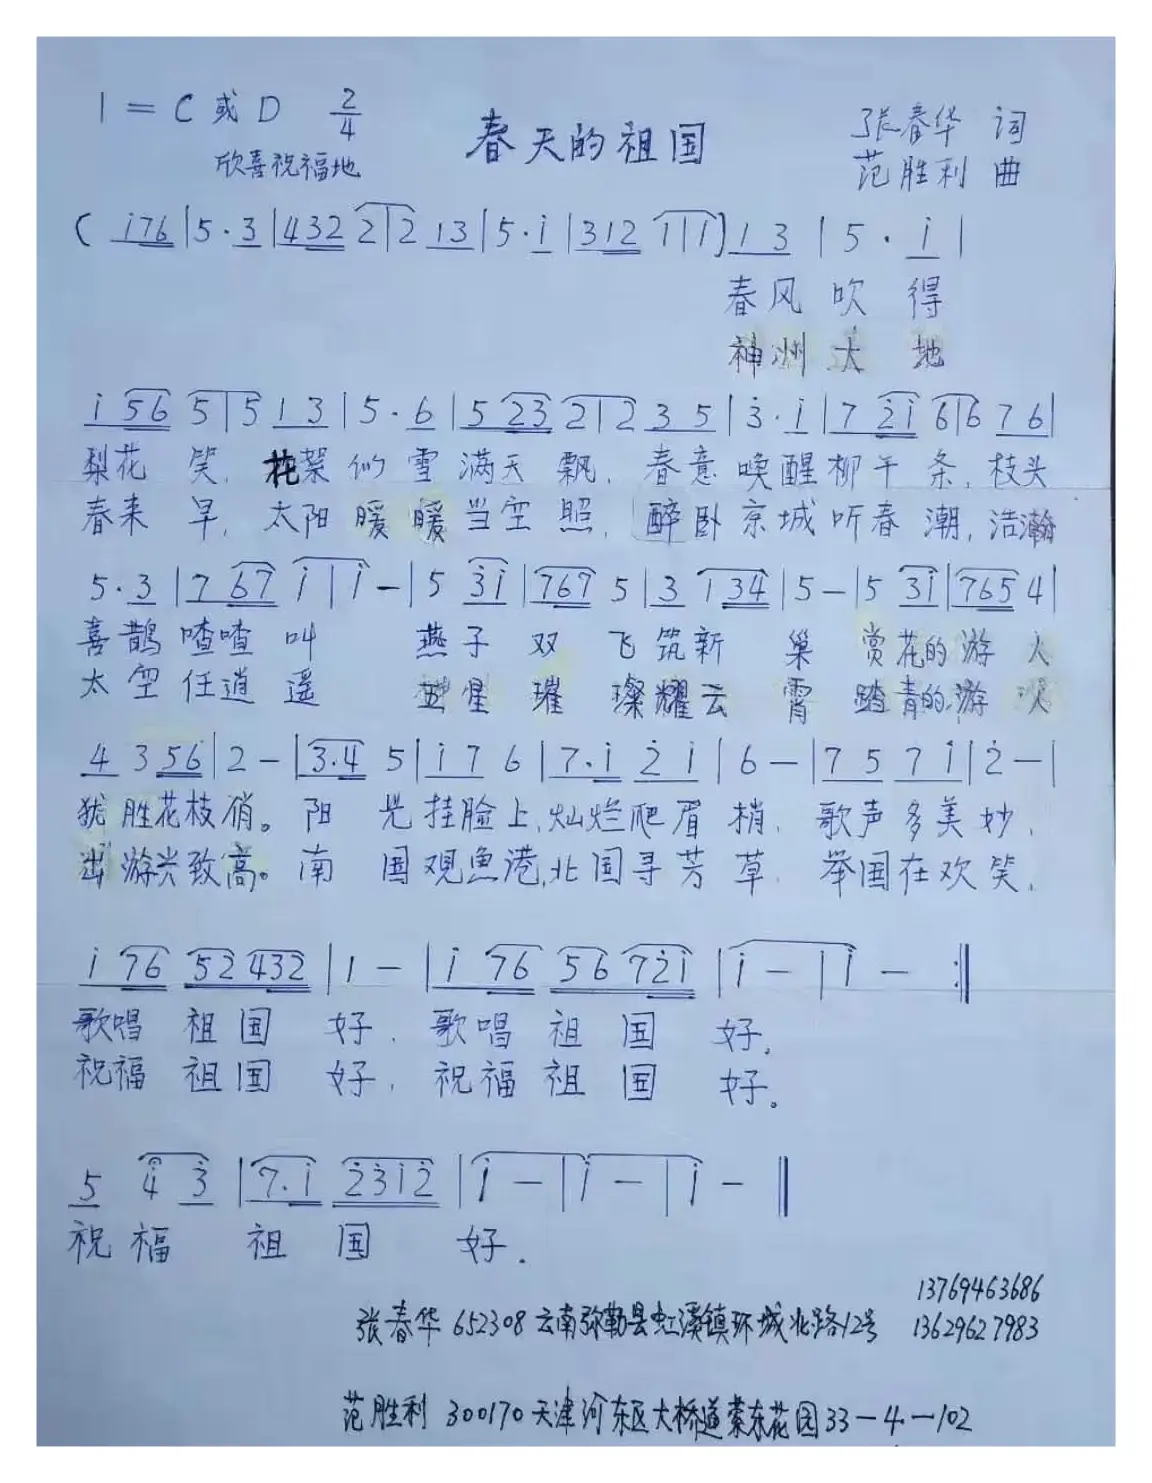 1=C或D 2/4
春天的祖国
张春华 词
欣喜祝福地
范胜利 曲
( i76|5·3|432 2|2 13|5·i|312 1|1 1)1 3|5·i|
春风吹得
神州大地
i 56 5|5 1 3|5·6|5 23 2|2 3 5|3·i|7 2i 6|6 7 6|
梨花笑,花絮似雪满天飘,春意唤醒柳千条,枝头
春来早,太阳暖暖当空照,醉卧京城听春潮,浩瀚
5·3|7 67 i|i-|5 3i|767 5|3 134|5-|5 3i|765 4|
喜鹊喳喳叫 燕子双飞筑新巢 赏花的游人
太空任逍遥 星璀璨耀云霄 踏青的游
4 3 56|2-|3·4 5|i 7 6|7·i 2 i|6-|7 5 7 i|2-|
犹胜花枝俏。阳光挂脸上,灿烂爬眉梢,歌声多美妙,
出游兴致高。南国观鱼港,北国寻芳草,举国在欢笑,
i 76 52432|1-|i 76 56 72i|i-|i-:‖
歌唱祖国好,歌唱祖国好,
祝福祖国好,祝福祖国好。
5 4 3|7·i 2312|i-|i-|i-‖
祝福祖国好.
13769463686
张春华 652308 云南弥勒县虹溪镇环城北路12号 13629627983
范胜利 300170 天津河东区大桥道蒙东花园33-4-102